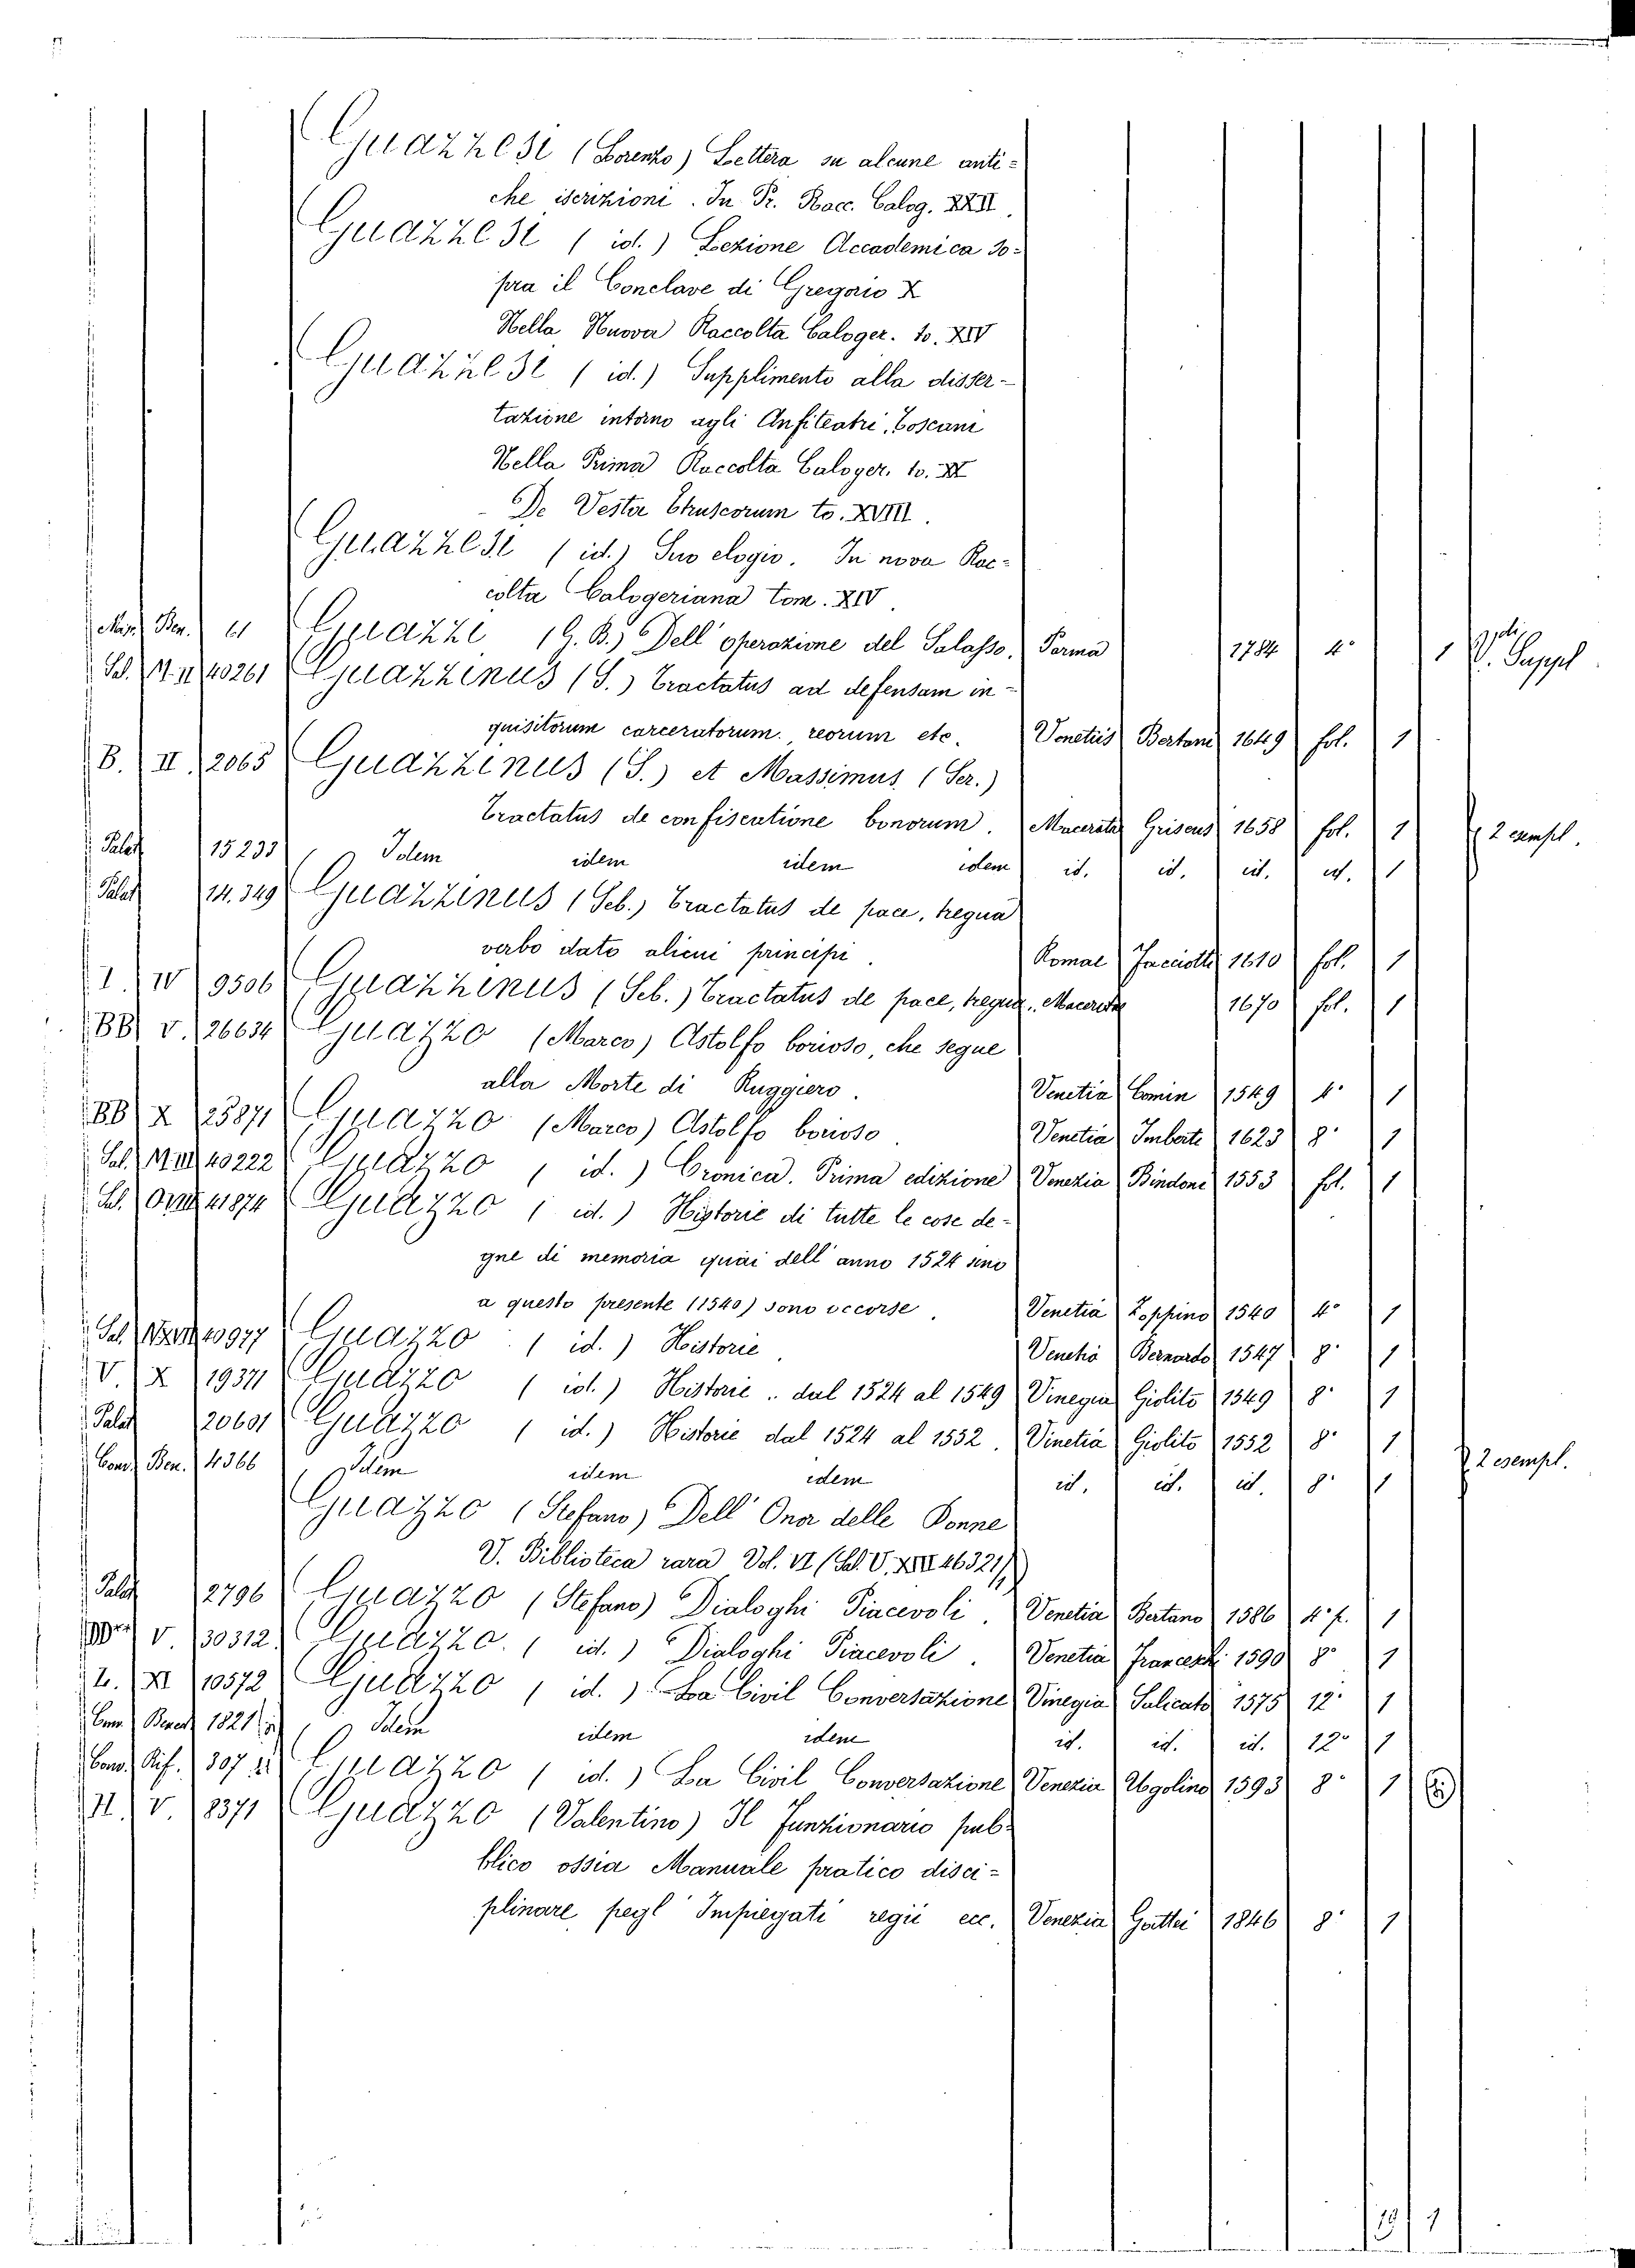 Guazzesi (Lorenzo) Lettera su alcune anti-
che iscrizioni. In Pr. Racc. Calog. XXII.
Guazzesi (id.) Lezione Accademica so-
pra il Conclave di Gregorio X
Nella Nuova Raccolta Caloger. to. XIV
Guazzesi (id.) Supplimento alla disser-
tazione intorno agli Anfiteatri, Toscani
Nella Prima Raccolta Caloger. to. XX
De Vester Etruscorum to. XVIII.
Guazzesi (id.) Suo elogio. In nova Rac-
colta Calogeriana tom. XIV.
Ben. 61 Guazzi (G. B.) Dell' operazione del Salasso. Parma 1784 4° 1 V. Suppl
Sal. M. II 40261 Guazzinus (S.) Tractatus ad defensam in-
quisitorum carceratorum reorum etc. Venetiis Bertani 1649 fol. 1
B. II 2065 Guazzinus (S.) et Massimus (Ser.)
Tractatus de confiscatione bonorum. Maceratae Griseus 1658 fol. 1 2 esempl.
Palat 15233 Idem idem idem idem id. id. id. id. 1
Palat 14.349 Guazzinus (Seb.) Tractatus de pace, tregua
verbo dato alicui principi. Romae Facciotti 1610 fol. 1
I. IV 9506 Guazzinus (Seb.) Tractatus de pace, tregua. Maceratae 1670 fol. 1
BB V. 26634 Guazzo (Marco) Astolfo borioso, che segue
alla Morte di Ruggiero. Venetia Comin 1549 4° 1
BB X 25871 Guazzo (Marco) Astolfo borioso. Venetia Imberte 1623 8° 1
Sal. M. III 40222 Guazzo (id.) Cronica. Prima edizione Venezia Bindoni 1553 fol. 1
Sal. 41874 Guazzo (id.) Historie di tutte le cose de-
gne di memoria quai dell' anno 1524 sino
a questo presente (1540) sono occorse. Venetia Zoppino 1540 4° 1
Sal. 40977 Guazzo (id.) Historie. Venetia Bernardo 1547 8° 1
V. X 19371 Guazzo (id.) Historie.. dal 1524 al 1549 Vinegia Giolito 1549 8° 1
Palat 20601 Guazzo (id.) Historie dal 1524 al 1552. Vinetia Giolito 1552 8° 1
Cons. Ben. 4366 Idem idem idem id. id. id. 8° 1 2 esempl.
Guazzo (Stefano) Dell' Onor delle Donne
V. Biblioteca rara Vol. VI (Sal. V. XIII 46321)
Palat 2796 Guazzo (Stefano) Dialoghi Piacevoli. Venetia Bertano 1586 4° p. 1
V. 30312 Guazzo. (id.) Dialoghi Piacevoli. Venetia Franceschi 1590 8° 1
L. XI 10572 Guazzo (id.) La Civil Conversazione Vinegia Salicato 1575 12° 1
Com. Bened. 1821 Idem idem idem id. id. id. 12° 1
Cons. Rif. 307 Guazzo (id.) La Civil Conversazione Venezia Ugolino 1593 8° 1
II. V. 8371 Guazzo (Valentino) Il Funzionario pub-
blico ossia Manuale pratico disci-
plinare pegl' Impiegati regii ecc. Venezia Gattei 1846 8° 1